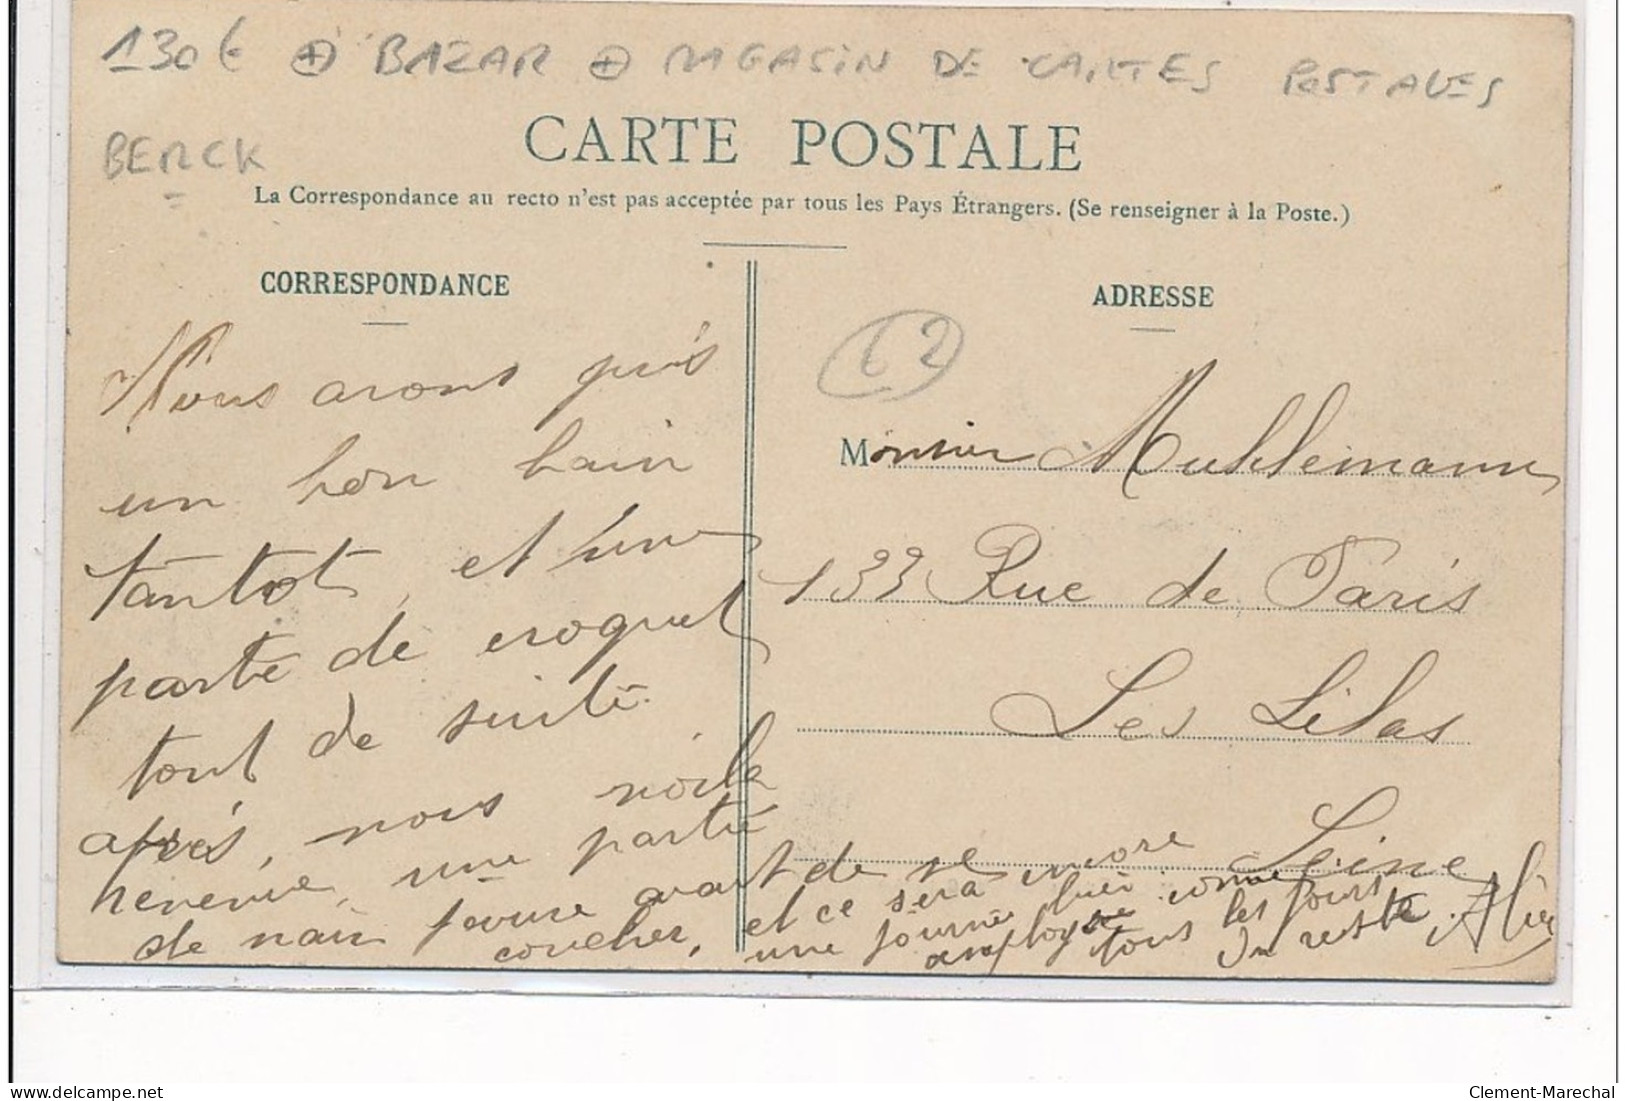 130€ ⊕ BAZAR ⊕ MAGASIN DE CARTES POSTALES
BERCK
CARTE POSTALE
La Correspondance au recto n'est pas acceptée par tous les Pays Étrangers. (Se renseigner à la Poste.)
CORRESPONDANCE
Nous avons pris
un bon bain
tantot, et une
partie de croquet
tout de suite
après, nous voila
revenue, une partie
de nain jaune avant de se
coucher, et ce sera encore
une journée bien
employée comme
tous les jours
du reste
ADRESSE
62
Monsieur Muhlemann
133 Rue de Paris
Les Lilas
Seine
delcampe.net
Clement-Marechal